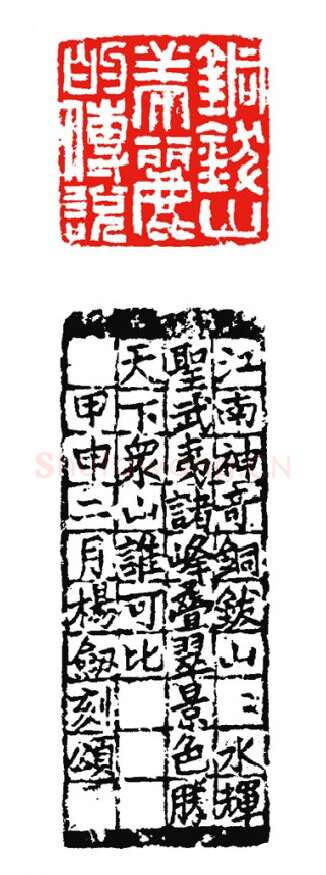 銅鈸山
美麗
的傳說
江南神奇銅鈸山〻水輝
聖武夷諸峰疊翠景色勝
天下衆山誰可比
甲申二月楊劍刻頌